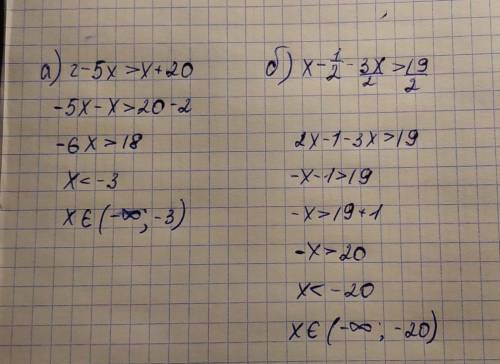 а) 2-5x>x+20
-5x-x>20-2
-6x>18
x<-3
x∈(-∞; -3)
б) x-1/2-3x/2>19/2
2x-1-3x>19
-x-1>19
-x>19+1
-x>20
x<-20
x∈(-∞; -20)